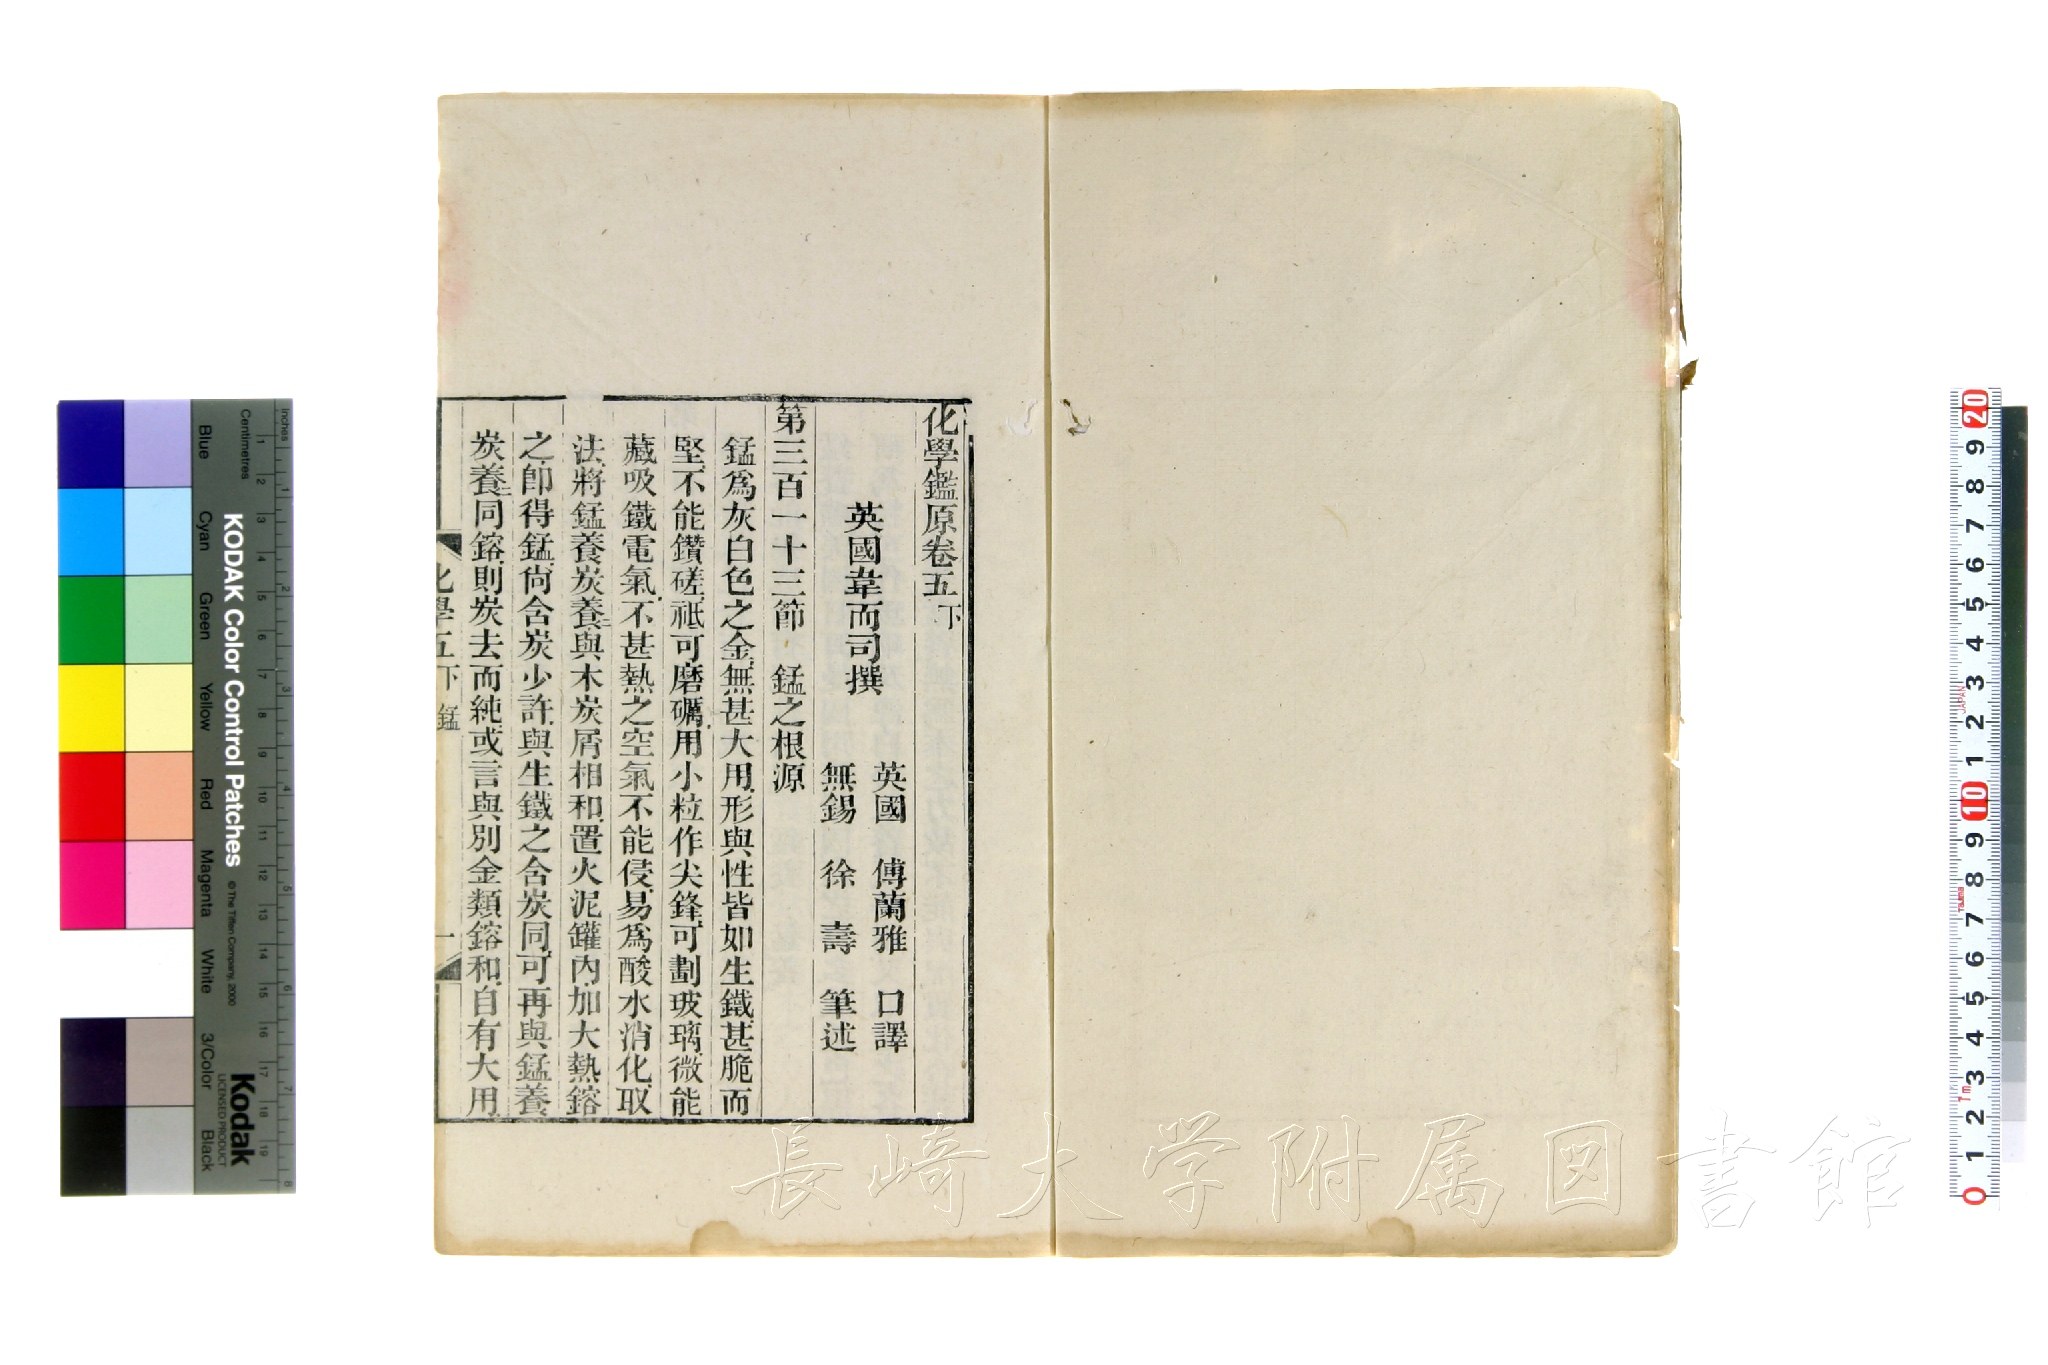 化學鑑原卷五下
英國韋而司撰
英國 傅蘭雅 口譯
無錫 徐壽 筆述
第三百一十三節 錳之根源
錳爲灰白色之金無甚大用形與性皆如生鐵甚脆而
堅不能鑽磋祗可磨礪用小粒作尖鋒可劃玻璃微能
藏吸鐵電氣不甚熱之空氣不能侵易爲酸水消化取
法將錳養炭養與木炭屑相和置火泥罐內加大熱鎔
之卽得錳尙含炭少許與生鐵之含炭同可再與錳養
炭養同鎔則炭去而純或言與別金類鎔和自有大用
化學五下 錳 一
長崎大学附属図書館
Inches
Centimetres
KODAK Color Control Patches
© The Tiffen Company, 2000
Kodak
LICENSED PRODUCT
Blue
Cyan
Green
Yellow
Red
Magenta
White
3/Color
Black
1 2 3 4 5 6 7 8
1 2 3 4 5 6 7 8 9 10 11 12 13 14 15 16 17 18 19
20 9 8 7 6 5 4 3 2 1 10 9 8 7 6 5 4 3 2 1 0
JAPAN
7m